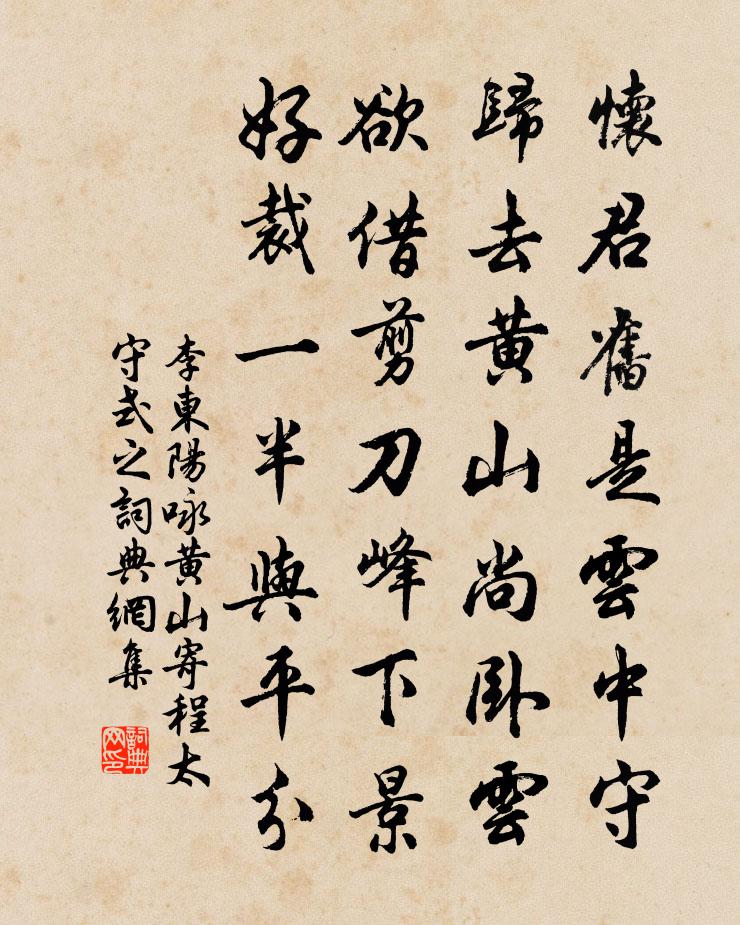 懷君舊是雲中守
歸去黃山尚臥雲
欲借剪刀峰下景
好裁一半與平分
李東陽咏黃山寄程太
守式之詞典網集
詞典
网印